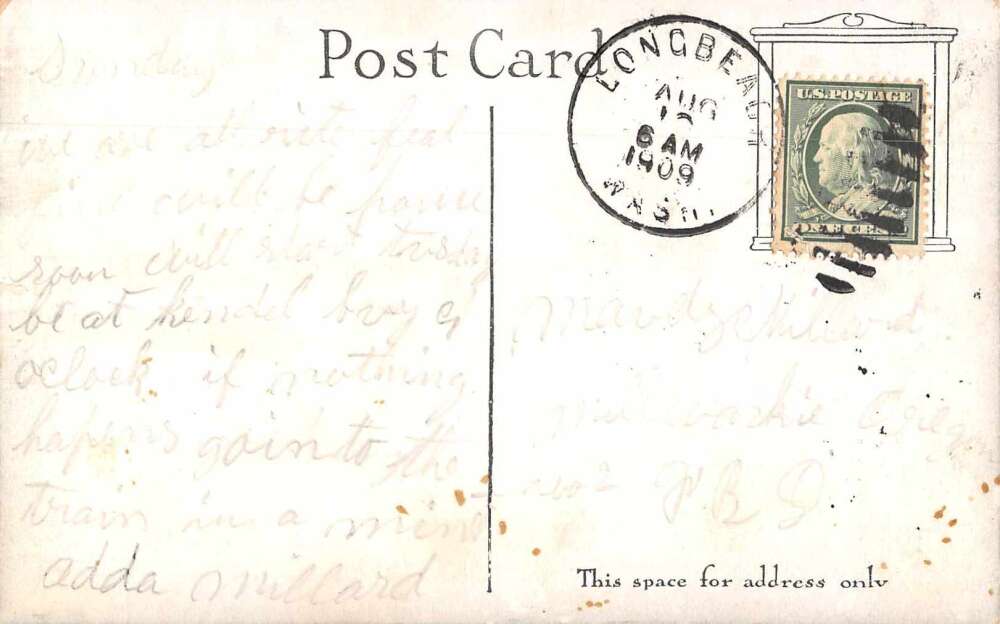 Post Card
LONGBEACH
AUG
6 AM
1909
WASH.
U.S. POSTAGE
ONE CENT
Sunday
we are at
will be
soon will start tusday
be at hendel bvy 9
oclock if notning
hapens goin to the
train in a
adda millard
Millard
milwackie Oregon
no 2
This space for address only